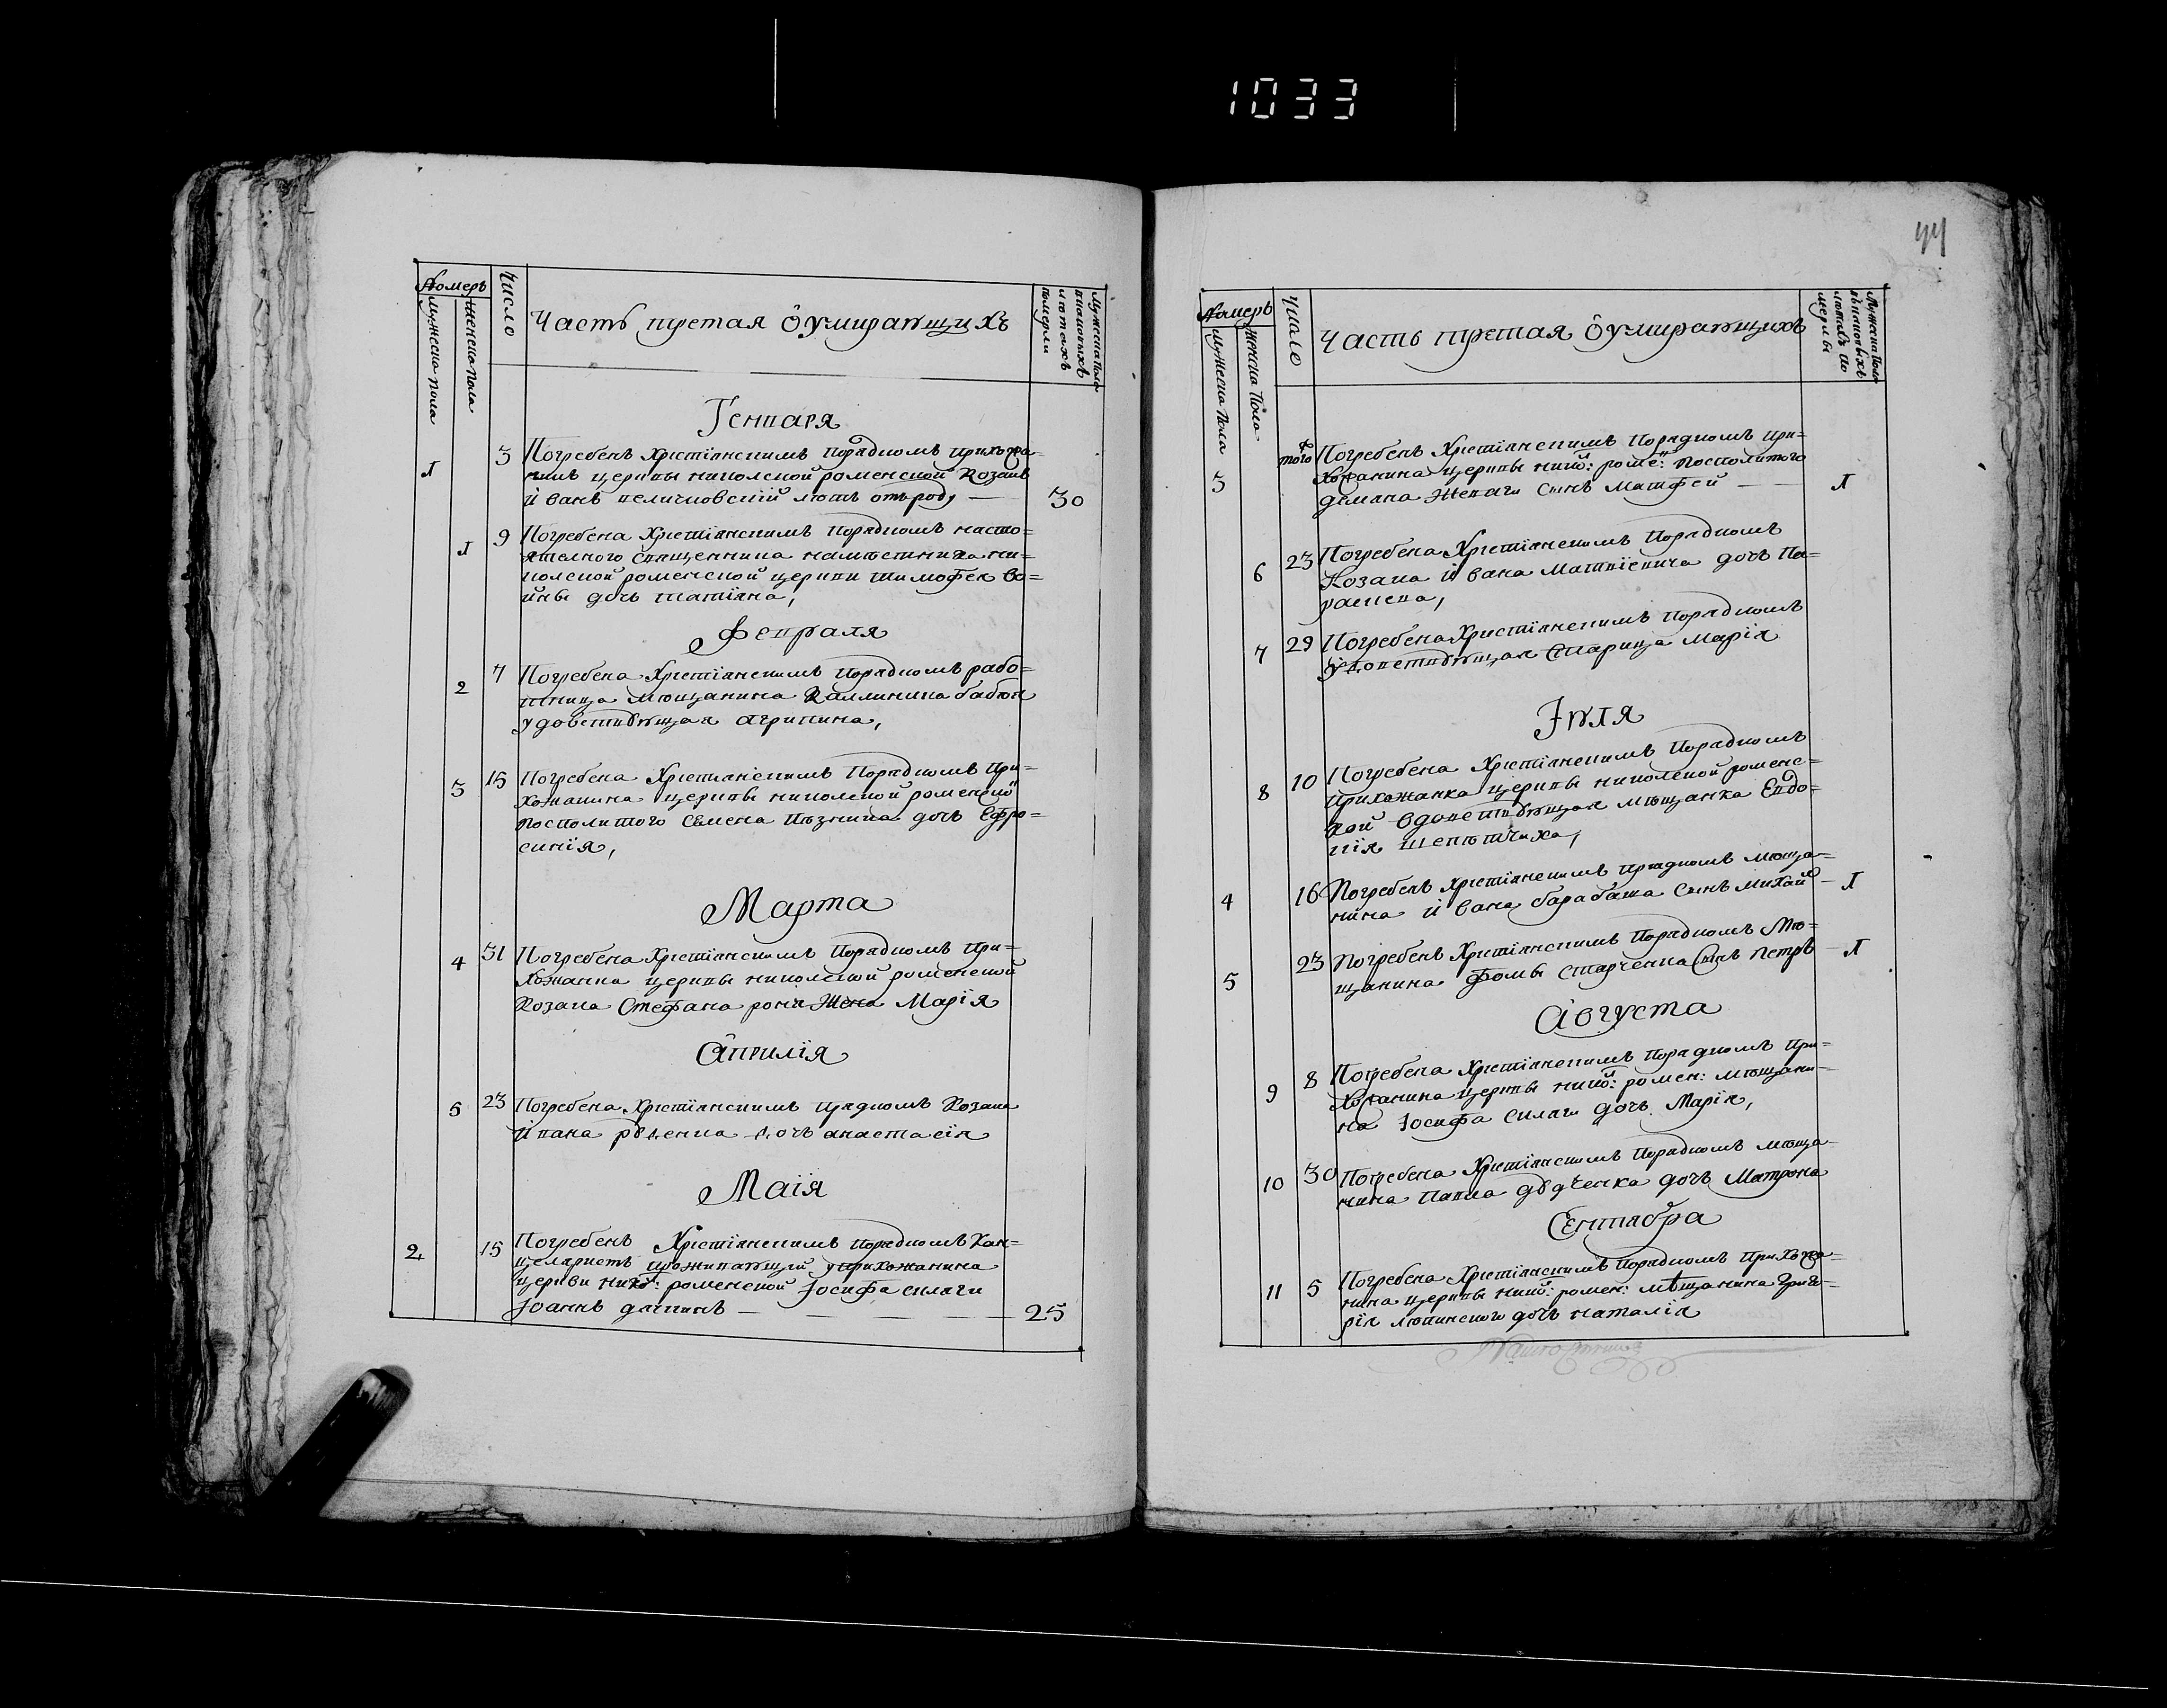 1033
44
Номеръ
мужеска пола
женска пола
Число
Часть третая о умирающихъ
Мужеска пола
в каковыхъ
лѣтахъ
померли
Генваря
1
3
Погребенъ Христіанскимъ порядкомъ прихожа-
нинъ церкви николской роменской козакъ
Иванъ величковскій лѣтъ отъ роду
30
1
9
Погребена Христіанскимъ порядкомъ насто-
ятелного священника намѣстника ни-
колской роменской церкви тимофея во-
йны дочь татіана,
Февраля
2
7
Погребена Христіанскимъ порядкомъ рабо-
тница мѣщанина
удовствующая агрипина,
3
15
Погребена Христіанскимъ порядкомъ при-
хожанина церкви николской роменской
посполитого Семена дочь Ефро-
синія,
Марта
4
31
Погребена Христіанскимъ порядкомъ при-
хожанка церкви николской роменской
козака Стефана жена Марія
Априлія
5
23
Погребена Христіанскимъ прядкомъ козака
Ивана дочь анастасія
Маія
2
15
Погребенъ Христіанскимъ порядкомъ кан-
целяристъ проживающій у прихожанина
церкви нико: роменской Іосифа силаги
Іоаннъ
25
Номеръ
мужеска пола
женска пола
Число
Часть третая о умирающихъ
Мужеска пола
в каковыхъ
лѣтахъ по
мерлы
3
того
Погребенъ Христіанскимъ порядкомъ при-
хожанина церкви нико: роме: посполитого
демяна сынъ Матфей
1
6
23
Погребена Христіанскимъ порядкомъ
козака Ивана Матвіевича дочь Па-
раскева,
7
29
Погребена Христіанскимъ порядкомъ
удовствующая старица Марія
Іюля
8
10
Погребена Христіанскимъ порядкомъ
прихожанка церкви николской роменс-
кой вдовствующая мѣщанка Евдо-
кія
4
16
Погребенъ Христіанскимъ прядкомъ мѣща-
нина Ивана барабаша сынъ Михайл
1
5
23
Погребенъ Христіанскимъ порядкомъ Мѣ-
щанина Фомы старченка сынъ петръ
1
Августа
9
8
Погребена Христіанскимъ порядкомъ при-
хожанина церквы нико: ромен: мѣщани-
на Іосифа силаги дочь Марія,
10
30
Погребена Христіанскимъ порядкомъ мѣща-
нина павла дочь Матрона
Сентябра
11
5
Погребена Христіанскимъ порядкомъ прихожа-
нина церквы нико: ромен: мѣщанина Григо-
рія дочь наталія